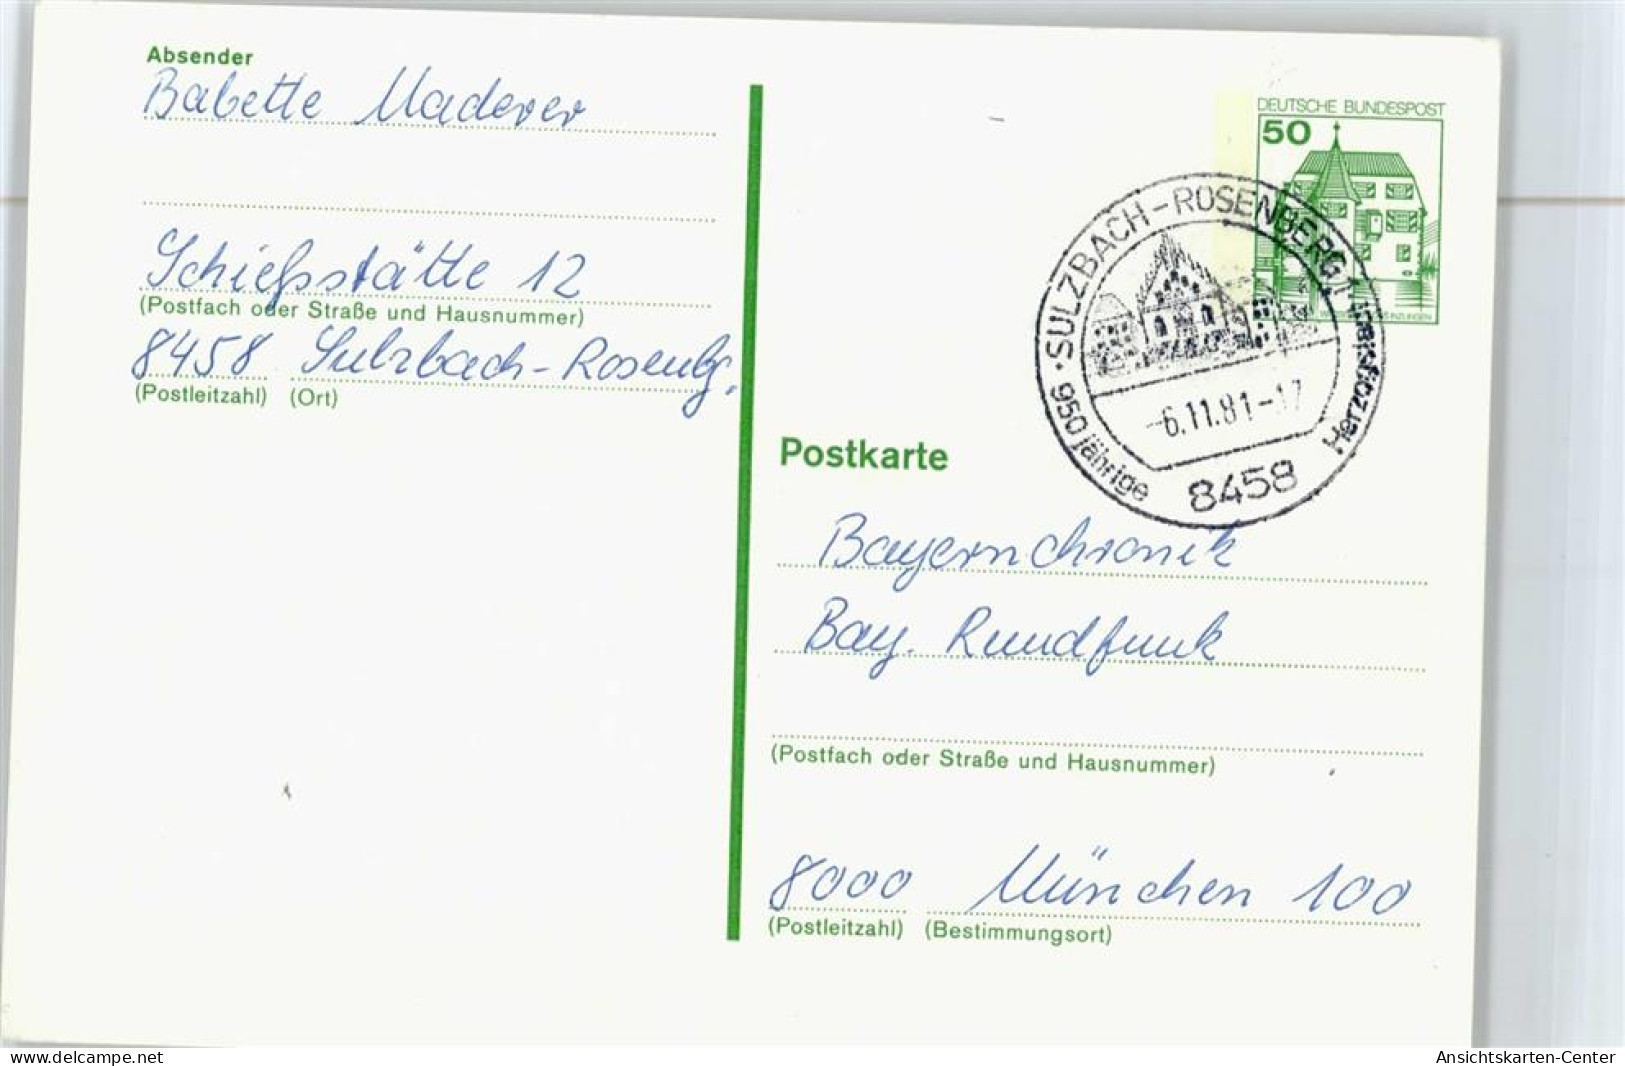 Absender
Babette Maderer
Schießstätte 12
(Postfach oder Straße und Hausnummer)
8458 Sulzbach-Rosenbg.
(Postleitzahl) (Ort)
DEUTSCHE BUNDESPOST
50
SULZBACH-ROSENBERG 1
950 jährige Herzogstadt
-6.11.81-17
8458
Postkarte
Bayernchronik
Bay. Rundfunk
(Postfach oder Straße und Hausnummer)
8000 München 100
(Postleitzahl) (Bestimmungsort)
delcampe.net
Ansichtskarten-Center